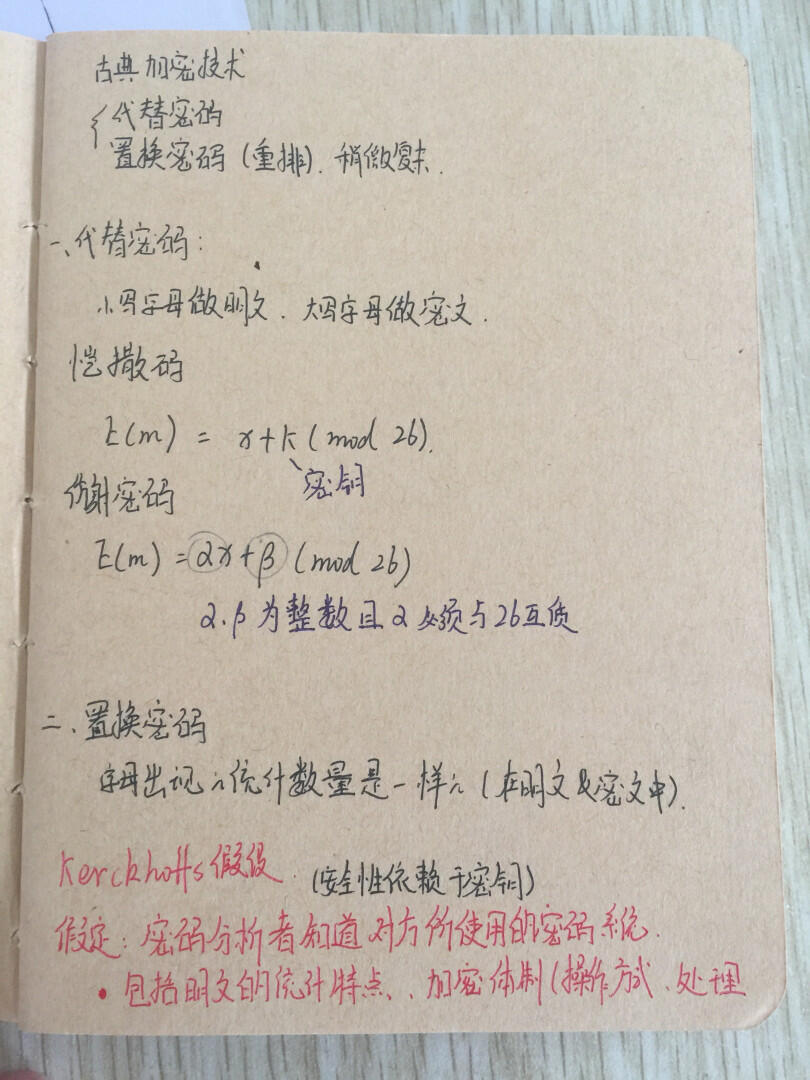 古典加密技术
代替密码
置换密码(重排). 稍微复杂.
一、代替密码:
小写字母做明文. 大写字母做密文.
恺撒码
E(m) = x+k (mod 26).
密钥
仿射密码
E(m) = αx+β (mod 26)
α.β为整数且α必须与26互质
二、置换密码
字母出现的统计数量是一样的(在明文&密文中).
Kerckhoffs假设. (安全性依赖于密钥)
假定:密码分析者知道对方所使用的密码系统.
• 包括明文的统计特点、加密体制(操作方式、处理